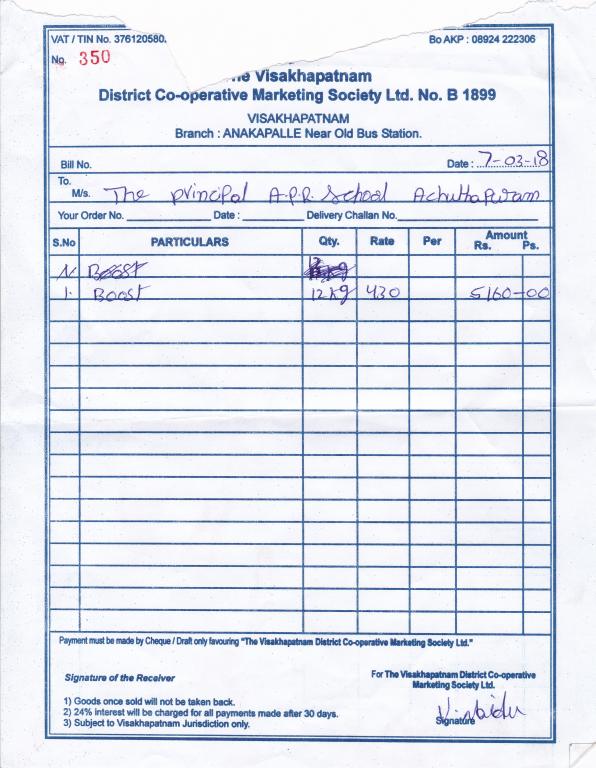 VAT / TIN No. 376120580. Bo AKP : 08924 222306
No. 350
The Visakhapatnam
District Co-operative Marketing Society Ltd. No. B 1899
VISAKHAPATNAM
Branch : ANAKAPALLE Near Old Bus Station.
Bill No. Date : 7-03-18
To.
M/s. The principal A.P.R. School Achuthapuram
Your Order No. Date : Delivery Challan No.
S.No PARTICULARS Qty. Rate Per Amount Rs. Ps.
Boost
1. Boost 12 kg 430 5160-00
Payment must be made by Cheque / Draft only favouring "The Visakhapatnam District Co-operative Marketing Society Ltd."
Signature of the Receiver
For The Visakhapatnam District Co-operative
Marketing Society Ltd.
1) Goods once sold will not be taken back.
2) 24% interest will be charged for all payments made after 30 days.
3) Subject to Visakhapatnam Jurisdiction only.
Signature